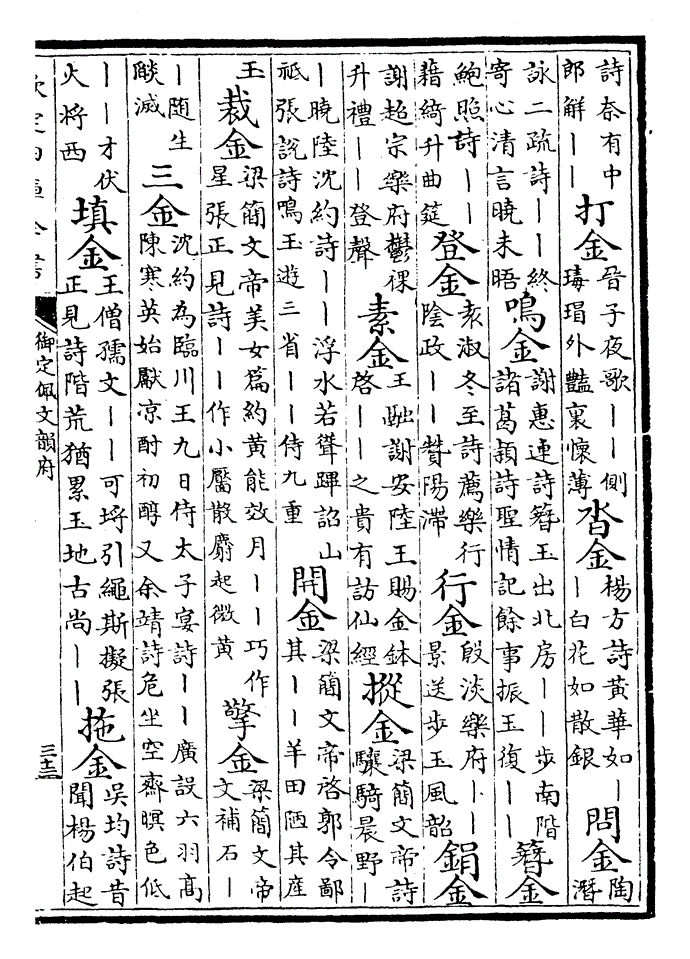 詩奈有中郎解丨丨 打金 晉子夜歌丨丨側瑇瑁外豔裏懷薄 沓金 楊方詩黃華如丨丨白花如散銀 問金 陶潛
詠二疏詩丨丨終寄心清言曉未晤 鳴金 謝惠連詩簪玉出北房丨丨步南階諸葛潁詩聖情記餘事振玉復丨丨 簪金
鮑照詩丨丨藉綺升曲筵 登金 袁淑冬至詩薦樂行陰政丨丨贊陽滯 行金 殷淡樂府丨丨景送步玉風韶 鋗金
謝超宗樂府鬱祼升禮丨丨登聲 素金 王融謝安陸王賜金鉢啓丨丨之貴有訪仙經 摐金 梁簡文帝詩驤騎晨野丨
丨曉陸沈約詩丨丨浮水若聳蹕詔山祗張說詩鳴玉遊三省丨丨侍九重 開金 梁簡文帝啓郭令鄙其丨丨羊田陋其産
玉 裁金 梁簡文帝美女篇約黃能效月丨丨巧作星張正見詩丨丨作小靨散麝起微黃 擎金 梁簡文帝文補石丨
丨随生燄滅 三金 沈約為臨川王九日侍太子宴詩丨丨廣設六羽髙陳寒英始獻凉酎初醇又余靖詩危坐空齋暝色低
丨丨才伏火將西 填金 王僧孺文丨丨可埒引繩斯擬張正見詩階荒猶累玉地古尚丨丨 拖金 吳均詩昔聞楊伯起
欽定四庫全書
御定佩文韻府
三十三